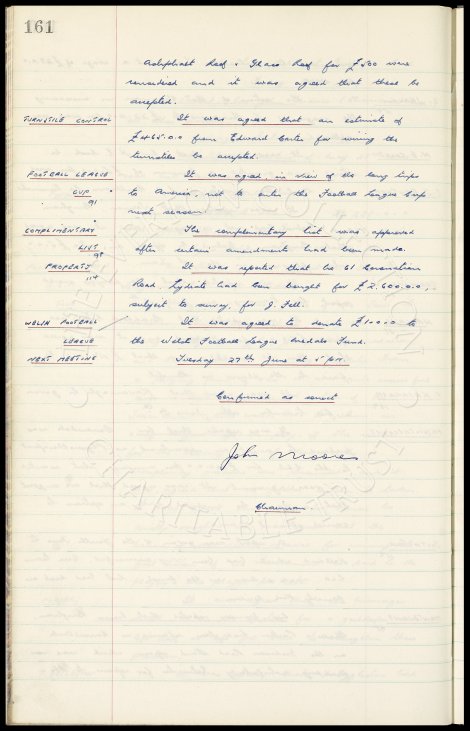 161
Asbphalt Roof & Glass Roof for £500 were
considered and it was agreed that these be
accepted.
TURNSTILE CONTROL It was agreed that an estimate of
from Edward Carter for wiring the
turnstiles be accepted.
FOOTBALL LEAGUE It was agreed, in view of the long trips
CUP to America, not to enter the Football League Cup
91 next season.
COMPLIMENTARY The complimentary list was approved
LIST after certain amendments had been made.
98
PROPERTY It was reported that 61 Coronation
114 Road, Lydiate had been bought for £2,600.0.0,
subject to survey, for J. Fell.
WELSH FOOTBALL It was agreed to donate £10.0.0 to
LEAGUE the Welsh Football League Medals Fund.
NEXT MEETING Tuesday 27th June at 5 pm.
Confirmed as correct
John Moores
Chairman.
EVERTON COLLECTION
CHARITABLE TRUST